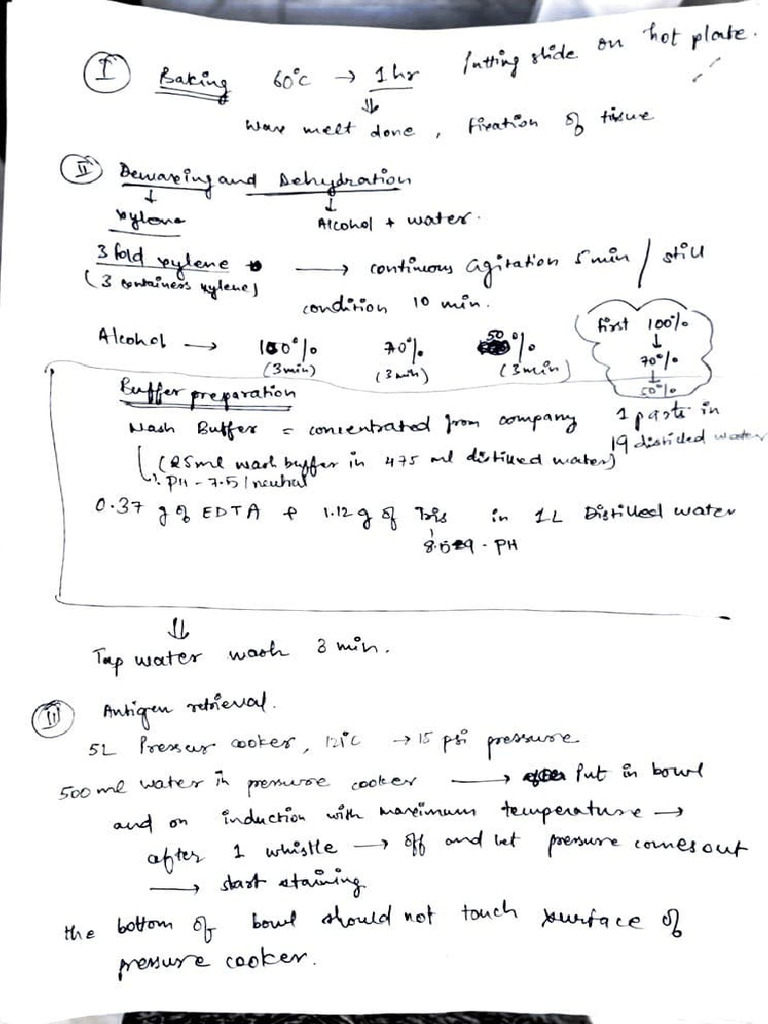 I Baking 60°C → 1 hr Putting slide on hot plate.
⇓
Wax melt done, fixation of tissue
II Dewaxing and Dehydration
↓ ↓
xylene Alcohol + water.
3 fold xylene → continuous agitation 5 min / still
(3 containers xylene) condition 10 min.
Alcohol → 100% 70% 50%
(3 min) (3 min) (3 min)
first 100%
↓
70%
↓
50%
Buffer preparation
Wash Buffer = concentrated from company 1 parts in
19 distilled water
(25ml wash buffer in 475 ml distilled water)
PH - 7.5 / neutral
0.37 g of EDTA & 1.12 g of Tris in 1L Distilled water
- PH
⇓
Tap water wash 3 min.
III Antigen retrieval.
5L Pressur cooker, → 15 psi pressure
500 ml water in pressure cooker → Put in bowl
and on induction with maximum temperature →
after 1 whistle → off and let pressure comes out
→ start staining
the bottom of bowl should not touch surface of
pressure cooker.